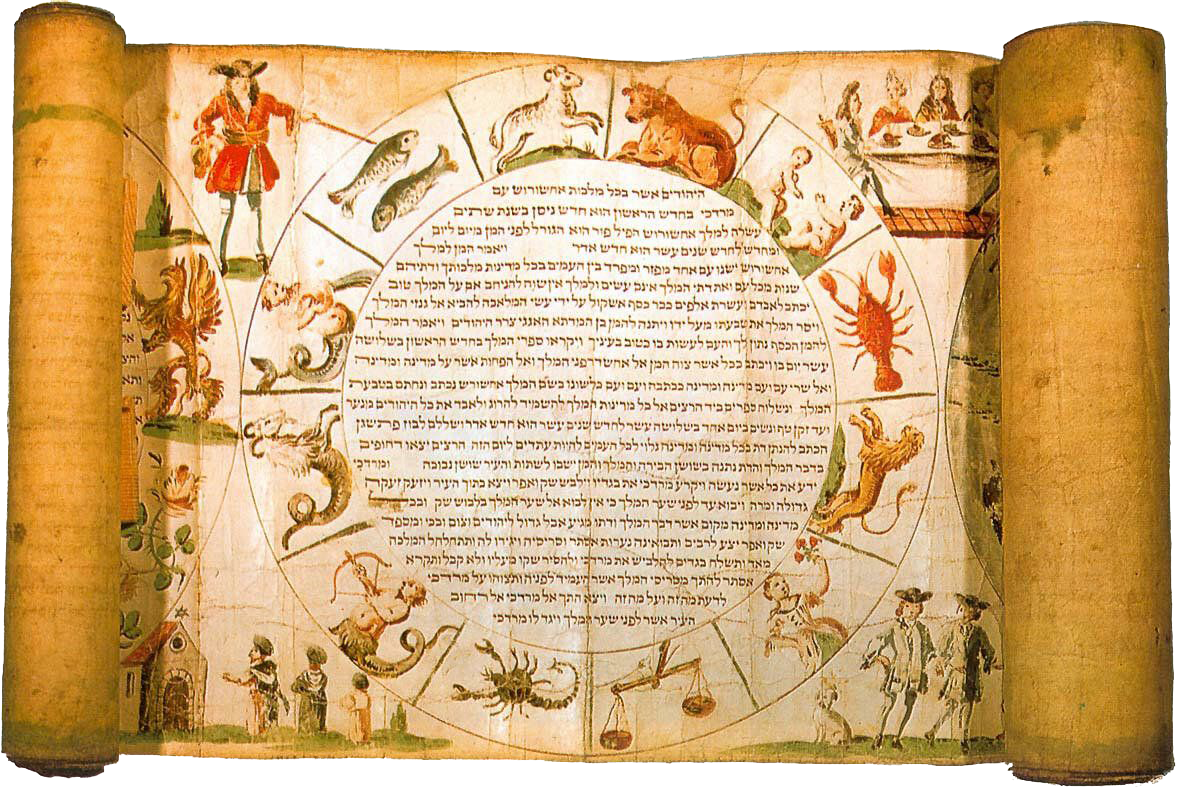 היהודים אשר בכל מלכות אחשורוש עם
מרדכי בחדש הראשון הוא חדש ניסן בשנת שתים
עשרה למלך אחשורוש הפיל פור הוא הגורל לפני המן מיום ליום
ומחדש לחדש שנים עשר הוא חדש אדר ויאמר המן למלך
אחשורוש ישנו עם אחד מפזר ומפרד בין העמים בכל מדינות מלכותך ודתיהם
שנות מכל עם ואת דתי המלך אינם עשים ולמלך אין שוה להניחם אם על המלך טוב
יכתב לאבדם ועשרת אלפים ככר כסף אשקול על ידי עשי המלאכה להביא אל גנזי המלך
ויסר המלך את טבעתו מעל ידו ויתנה להמן בן המדתא האגגי צרר היהודים ויאמר המלך
להמן הכסף נתון לך והעם לעשות בו כטוב בעיניך ויקראו ספרי המלך בחדש הראשון בשלושה
עשר יום בו ויכתב ככל אשר צוה המן אל אחשדרפני המלך ואל הפחות אשר על מדינה ומדינה
ואל שרי עם ועם מדינה ומדינה ככתבה ועם ועם כלשונו בשם המלך אחשורש נכתב ונחתם בטבעת
המלך ונשלוח ספרים ביד הרצים אל כל מדינות המלך להשמיד להרג ולאבד את כל היהודים מנער
ועד זקן טף ונשים ביום אחד בשלושה עשר לחדש שנים עשר הוא חדש אדר ושללם לבוז פתשגן
הכתב להנתן דת בכל מדינה ומדינה גלוי לכל העמים להיות עתדים ליום הזה הרצים יצאו דחופים
בדבר המלך והדת נתנה בשושן הבירה והמלך והמן ישבו לשתות והעיר שושן נבוכה ומרדכי
ידע את כל אשר נעשה ויקרע מרדכי את בגדיו וילבש שק ואפר ויצא בתוך העיר ויזעק זעקה
גדולה ומרה ויבוא עד לפני שער המלך כי אין לבוא אל שער המלך בלבוש שק ובכל
מדינה ומדינה מקום אשר דבר המלך ודתו מגיע אבל גדול ליהודים וצום ובכי ומספד
שק ואפר יצע לרבים ותבואינה נערות אסתר וסריסיה ויגידו לה ותתחלחל המלכה
מאד ותשלח בגדים להלביש את מרדכי ולהסיר שקו מעליו ולא קבל ותקרא
אסתר להתך מסריסי המלך אשר העמיד לפניה ותצוהו על מרדכי
לדעת מה זה ועל מה זה ויצא התך אל מרדכי אל רחוב
העיר אשר לפני שער המלך ויגד לו מרדכי